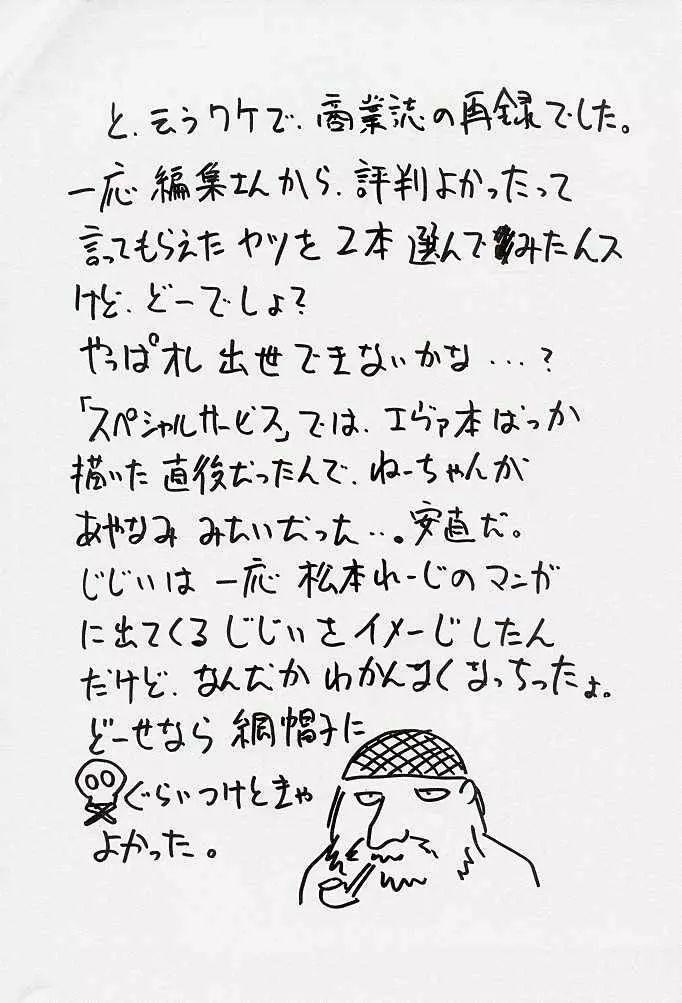 と、云うワケで、商業誌の再録でした。
一応 編集さんから、評判よかったって
言ってもらえた ヤツを 2本 選んで みたんス
けど、どーでしょ?
やっぱオレ 出世できないかな…?
「スペシャルサービス」では、エヴァ本ばっか
描いた 直後だったんで、ねーちゃんが
あやなみ みたいだった…。安直だ。
じじいは 一応 松本れーじのマンガ
に出てくる じじいをイメーじしたん
だけど、なんだか わかんなく なっちったよ。
どーせなら 網帽子に
ぐらいつけときゃ
よかった。